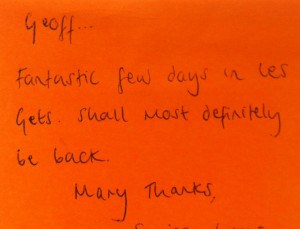 Geoff...
Fantastic few days in Les
Gets. Shall most definitely
be back.
Many Thanks,